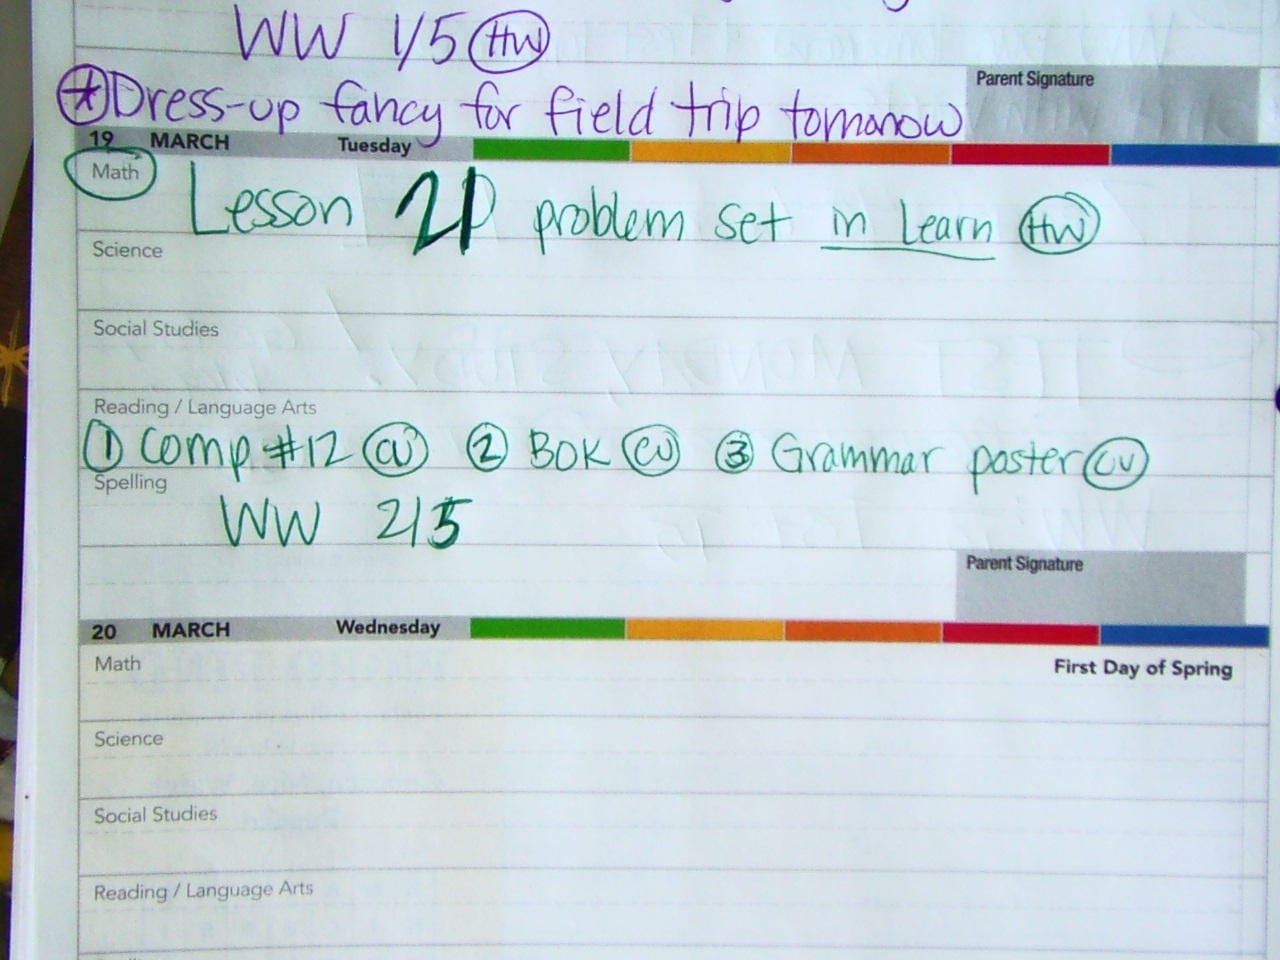 WW 1/5 HW
Parent Signature
* Dress-up fancy for field trip tomorrow
19 MARCH Tuesday
Math
Lesson 21 problem set in Learn HW
Science
Social Studies
Reading / Language Arts
1 Comp #12 CU 2 BOK CU 3 Grammar poster CU
Spelling
WW 2/5
Parent Signature
20 MARCH Wednesday
Math
First Day of Spring
Science
Social Studies
Reading / Language Arts